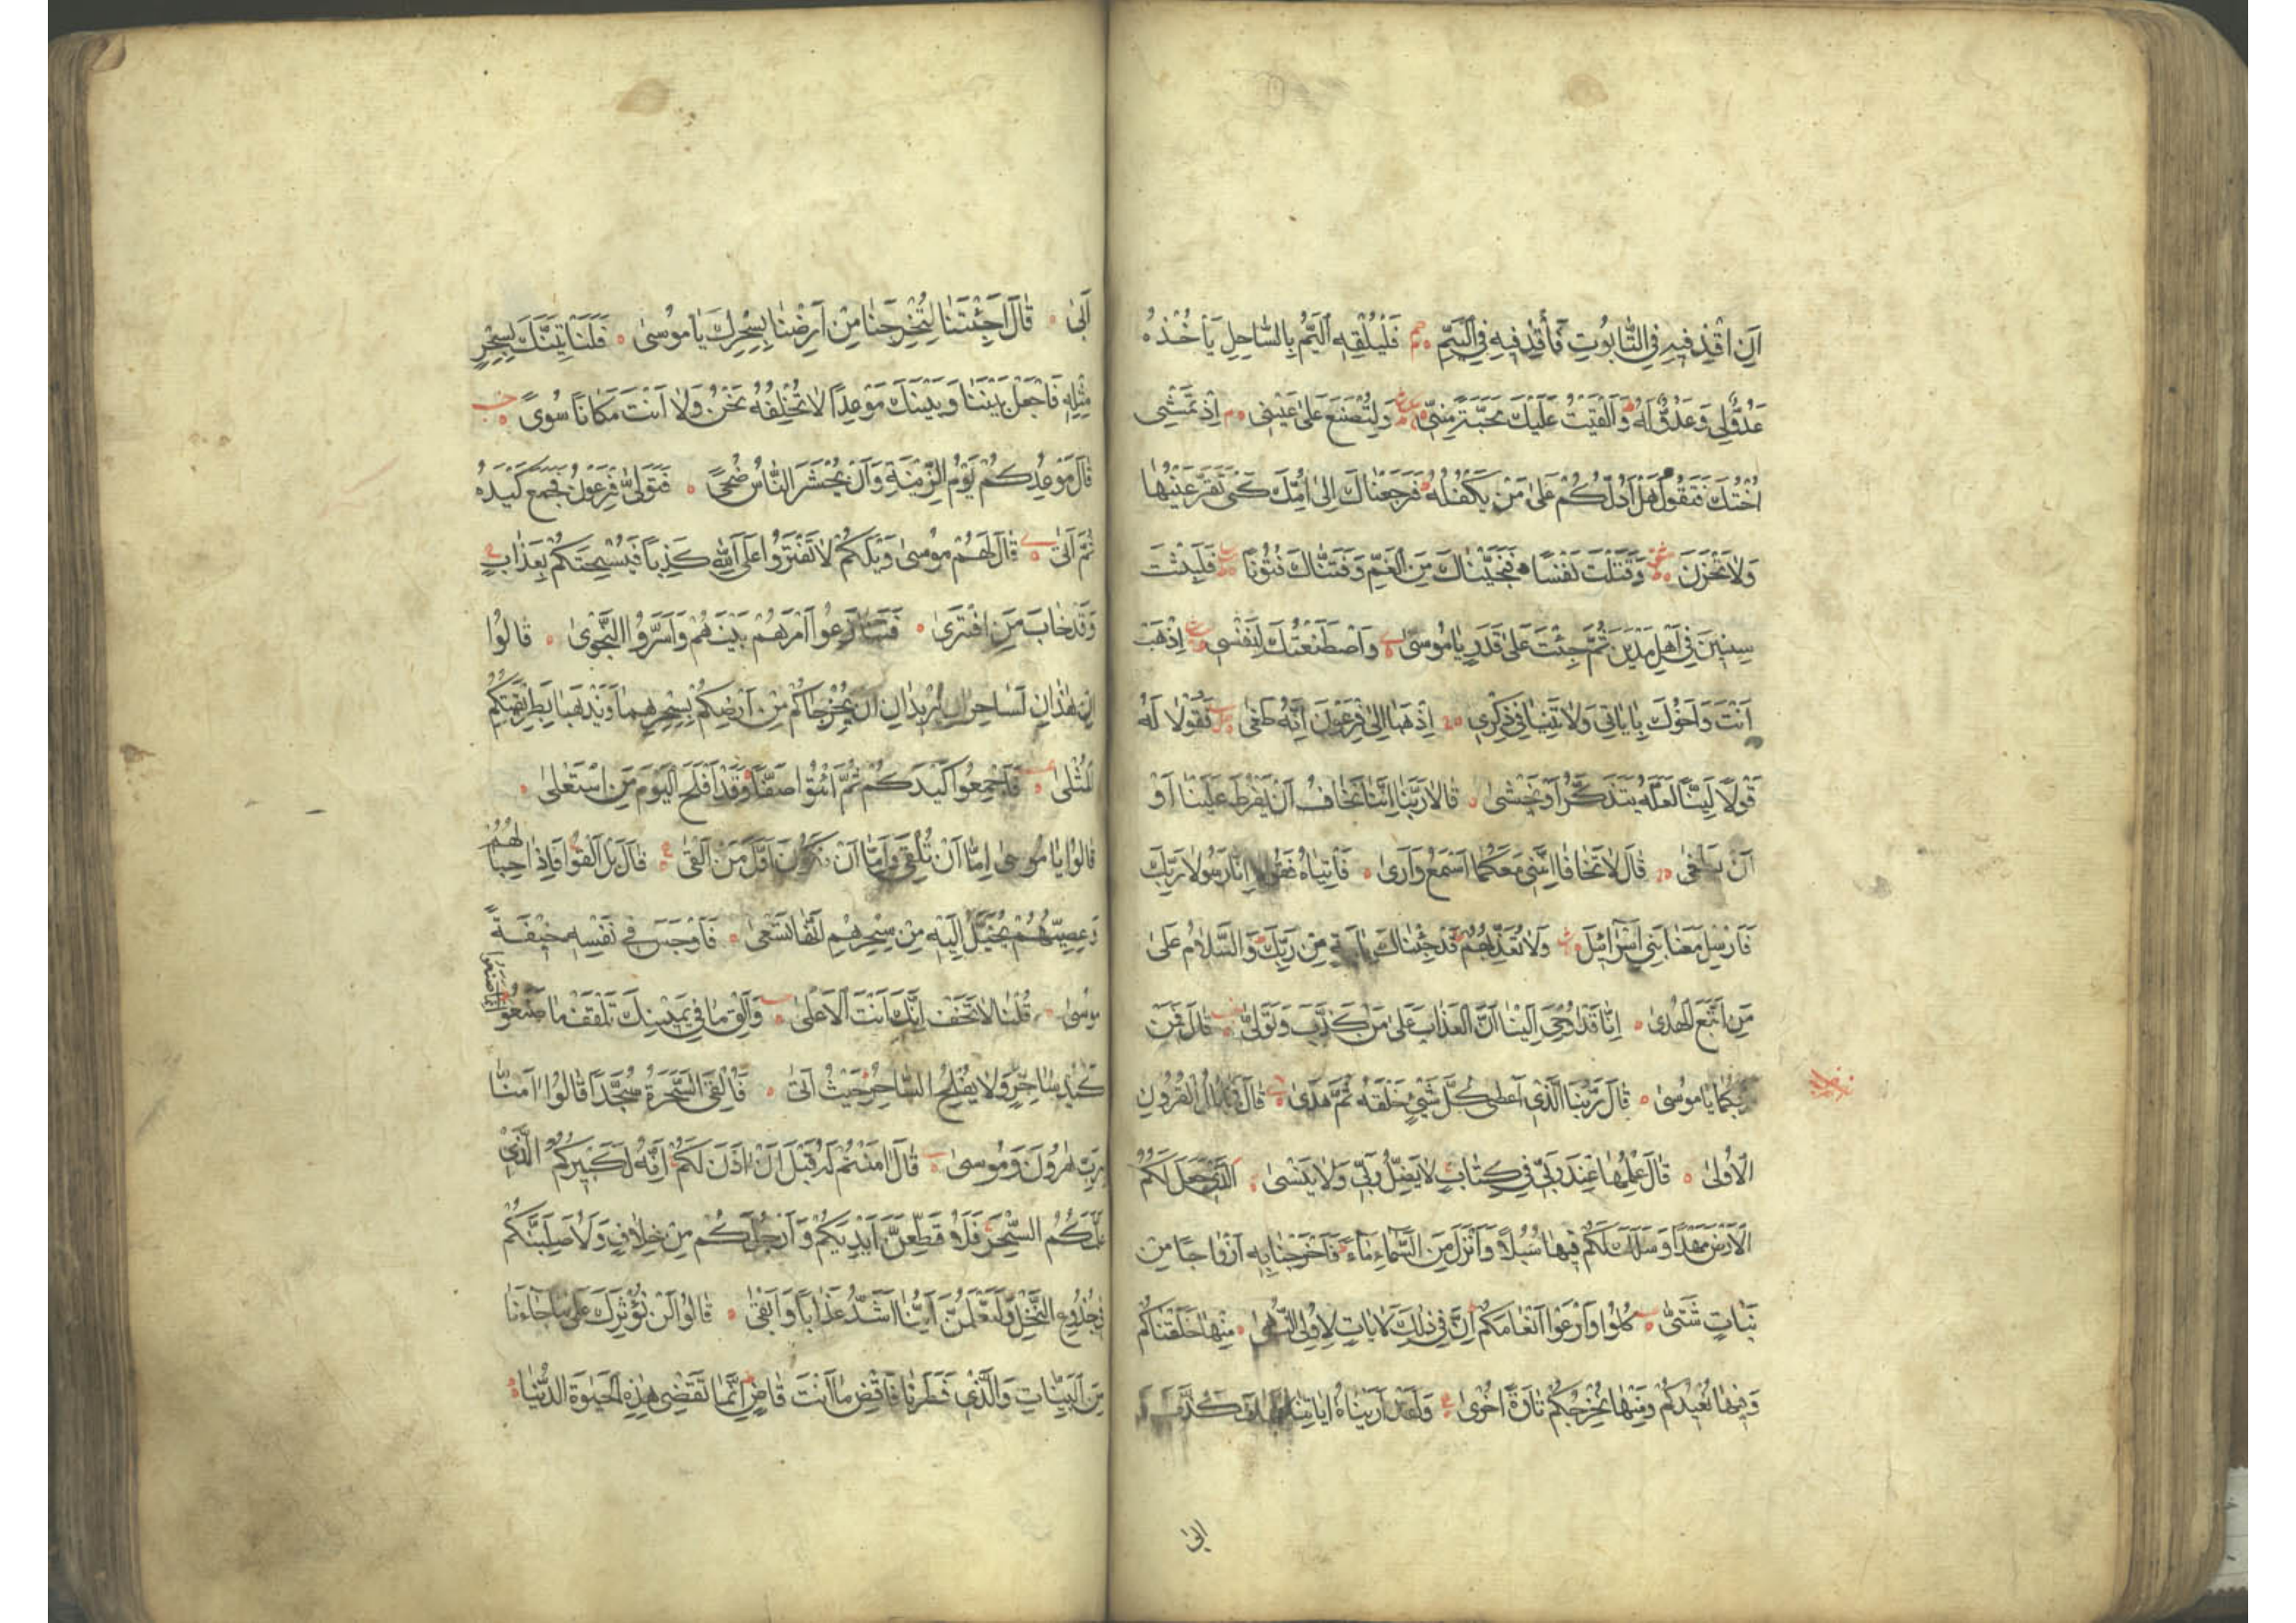 اَنِ اقْذِفيهِ فِي التَّابُوتِ فَاقْذِفيهِ فِي الْيَمِّ فَلْيُلْقِهِ الْيَمُّ بِالسَّاحِلِ يَأْخُذْهُ
عَدُوٌّ لي وَعَدُوٌّ لَهُ وَاَلْقَيْتُ عَلَيْكَ مَحَبَّةً مِنّي وَلِتُصْنَعَ عَلىٰ عَيْني اِذْ تَمْشي
اُخْتُكَ فَتَقُولُ هَلْ اَدُلُّكُمْ عَلىٰ مَنْ يَكْفُلُهُ فَرَجَعْنَاكَ اِلىٰ اُمِّكَ كَيْ تَقَرَّ عَيْنُهَا
وَلَا تَحْزَنَ وَقَتَلْتَ نَفْسًا فَنَجَّيْنَاكَ مِنَ الْغَمِّ وَفَتَنَّاكَ فُتُونًا فَلَبِثْتَ
سِنينَ في اَهْلِ مَدْيَنَ ثُمَّ جِئْتَ عَلىٰ قَدَرٍ يَا مُوسىٰ وَاصْطَنَعْتُكَ لِنَفْسي اِذْهَبْ
اَنْتَ وَاَخُوكَ بِاٰيَاتي وَلَا تَنِيَا في ذِكْري اِذْهَبَا اِلىٰ فِرْعَوْنَ اِنَّهُ طَغىٰ فَقُولَا لَهُ
قَوْلًا لَيِّنًا لَعَلَّهُ يَتَذَكَّرُ اَوْ يَخْشىٰ قَالَا رَبَّنَا اِنَّنَا نَخَافُ اَنْ يَفْرُطَ عَلَيْنَا اَوْ
اَنْ يَطْغىٰ قَالَ لَا تَخَافَا اِنَّني مَعَكُمَا اَسْمَعُ وَاَرىٰ فَأْتِيَاهُ فَقُولَا اِنَّا رَسُولَا رَبِّكَ
فَاَرْسِلْ مَعَنَا بَني اِسْرَائيلَ وَلَا تُعَذِّبْهُمْ قَدْ جِئْنَاكَ بِاٰيَةٍ مِنْ رَبِّكَ وَالسَّلَامُ عَلىٰ
مَنِ اتَّبَعَ الْهُدىٰ اِنَّا قَدْ اُوحِيَ اِلَيْنَا اَنَّ الْعَذَابَ عَلىٰ مَنْ كَذَّبَ وَتَوَلّىٰ قَالَ فَمَنْ
رَبُّكُمَا يَا مُوسىٰ قَالَ رَبُّنَا الَّذي اَعْطىٰ كُلَّ شَيْءٍ خَلْقَهُ ثُمَّ هَدىٰ قَالَ فَمَا بَالُ الْقُرُونِ
الْاُولىٰ قَالَ عِلْمُهَا عِنْدَ رَبّي في كِتَابٍ لَا يَضِلُّ رَبّي وَلَا يَنْسىٰ الَّذي جَعَلَ لَكُمُ
الْاَرْضَ مَهْدًا وَسَلَكَ لَكُمْ فيهَا سُبُلًا وَاَنْزَلَ مِنَ السَّمَاءِ مَاءً فَاَخْرَجْنَا بِهِ اَزْوَاجًا مِنْ
نَبَاتٍ شَتّىٰ كُلُوا وَارْعَوْا اَنْعَامَكُمْ اِنَّ في ذٰلِكَ لَاٰيَاتٍ لِاُولِي النُّهىٰ مِنْهَا خَلَقْنَاكُمْ
وَفيهَا نُعيدُكُمْ وَمِنْهَا نُخْرِجُكُمْ تَارَةً اُخْرىٰ وَلَقَدْ اَرَيْنَاهُ اٰيَاتِنَا كُلَّهَا فَكَذَّبَ وَ
ابىٰ
اَبىٰ قَالَ اَجِئْتَنَا لِتُخْرِجَنَا مِنْ اَرْضِنَا بِسِحْرِكَ يَا مُوسىٰ فَلَنَأْتِيَنَّكَ بِسِحْرٍ
مِثْلِهِ فَاجْعَلْ بَيْنَنَا وَبَيْنَكَ مَوْعِدًا لَا نُخْلِفُهُ نَحْنُ وَلَا اَنْتَ مَكَانًا سُوىً
قَالَ مَوْعِدُكُمْ يَوْمُ الزّينَةِ وَاَنْ يُحْشَرَ النَّاسُ ضُحىً فَتَوَلّىٰ فِرْعَوْنُ فَجَمَعَ كَيْدَهُ
ثُمَّ اَتىٰ قَالَ لَهُمْ مُوسىٰ وَيْلَكُمْ لَا تَفْتَرُوا عَلَى اللّٰهِ كَذِبًا فَيُسْحِتَكُمْ بِعَذَابٍ
وَقَدْ خَابَ مَنِ افْتَرىٰ فَتَنَازَعُوا اَمْرَهُمْ بَيْنَهُمْ وَاَسَرُّوا النَّجْوىٰ قَالُوا
اِنْ هٰذَانِ لَسَاحِرَانِ يُريدَانِ اَنْ يُخْرِجَاكُمْ مِنْ اَرْضِكُمْ بِسِحْرِهِمَا وَيَذْهَبَا بِطَريقَتِكُمُ
الْمُثْلىٰ فَاَجْمِعُوا كَيْدَكُمْ ثُمَّ ائْتُوا صَفًّا وَقَدْ اَفْلَحَ الْيَوْمَ مَنِ اسْتَعْلىٰ
قَالُوا يَا مُوسىٰ اِمَّا اَنْ تُلْقِيَ وَاِمَّا اَنْ نَكُونَ اَوَّلَ مَنْ اَلْقىٰ قَالَ بَلْ اَلْقُوا فَاِذَا حِبَالُهُمْ
وَعِصِيُّهُمْ يُخَيَّلُ اِلَيْهِ مِنْ سِحْرِهِمْ اَنَّهَا تَسْعىٰ فَاَوْجَسَ في نَفْسِهِ خيفَةً
مُوسىٰ قُلْنَا لَا تَخَفْ اِنَّكَ اَنْتَ الْاَعْلىٰ وَاَلْقِ مَا في يَمينِكَ تَلْقَفْ مَا صَنَعُوا
اِنَّمَا صَنَعُوا
كَيْدُ سَاحِرٍ وَلَا يُفْلِحُ السَّاحِرُ حَيْثُ اَتىٰ فَاُلْقِيَ السَّحَرَةُ سُجَّدًا قَالُوا اٰمَنَّا
بِرَبِّ هٰرُونَ وَمُوسىٰ قَالَ اٰمَنْتُمْ لَهُ قَبْلَ اَنْ اٰذَنَ لَكُمْ اِنَّهُ لَكَبيرُكُمُ الَّذي
عَلَّمَكُمُ السِّحْرَ فَلَاُقَطِّعَنَّ اَيْدِيَكُمْ وَاَرْجُلَكُمْ مِنْ خِلَافٍ وَلَاُصَلِّبَنَّكُمْ
في جُذُوعِ النَّخْلِ وَلَتَعْلَمُنَّ اَيُّنَا اَشَدُّ عَذَابًا وَاَبْقىٰ قَالُوا لَنْ نُؤْثِرَكَ عَلىٰ مَا جَاءَنَا
مِنَ الْبَيِّنَاتِ وَالَّذي فَطَرَنَا فَاقْضِ مَا اَنْتَ قَاضٍ اِنَّمَا تَقْضي هٰذِهِ الْحَيٰوةَ الدُّنْيَا